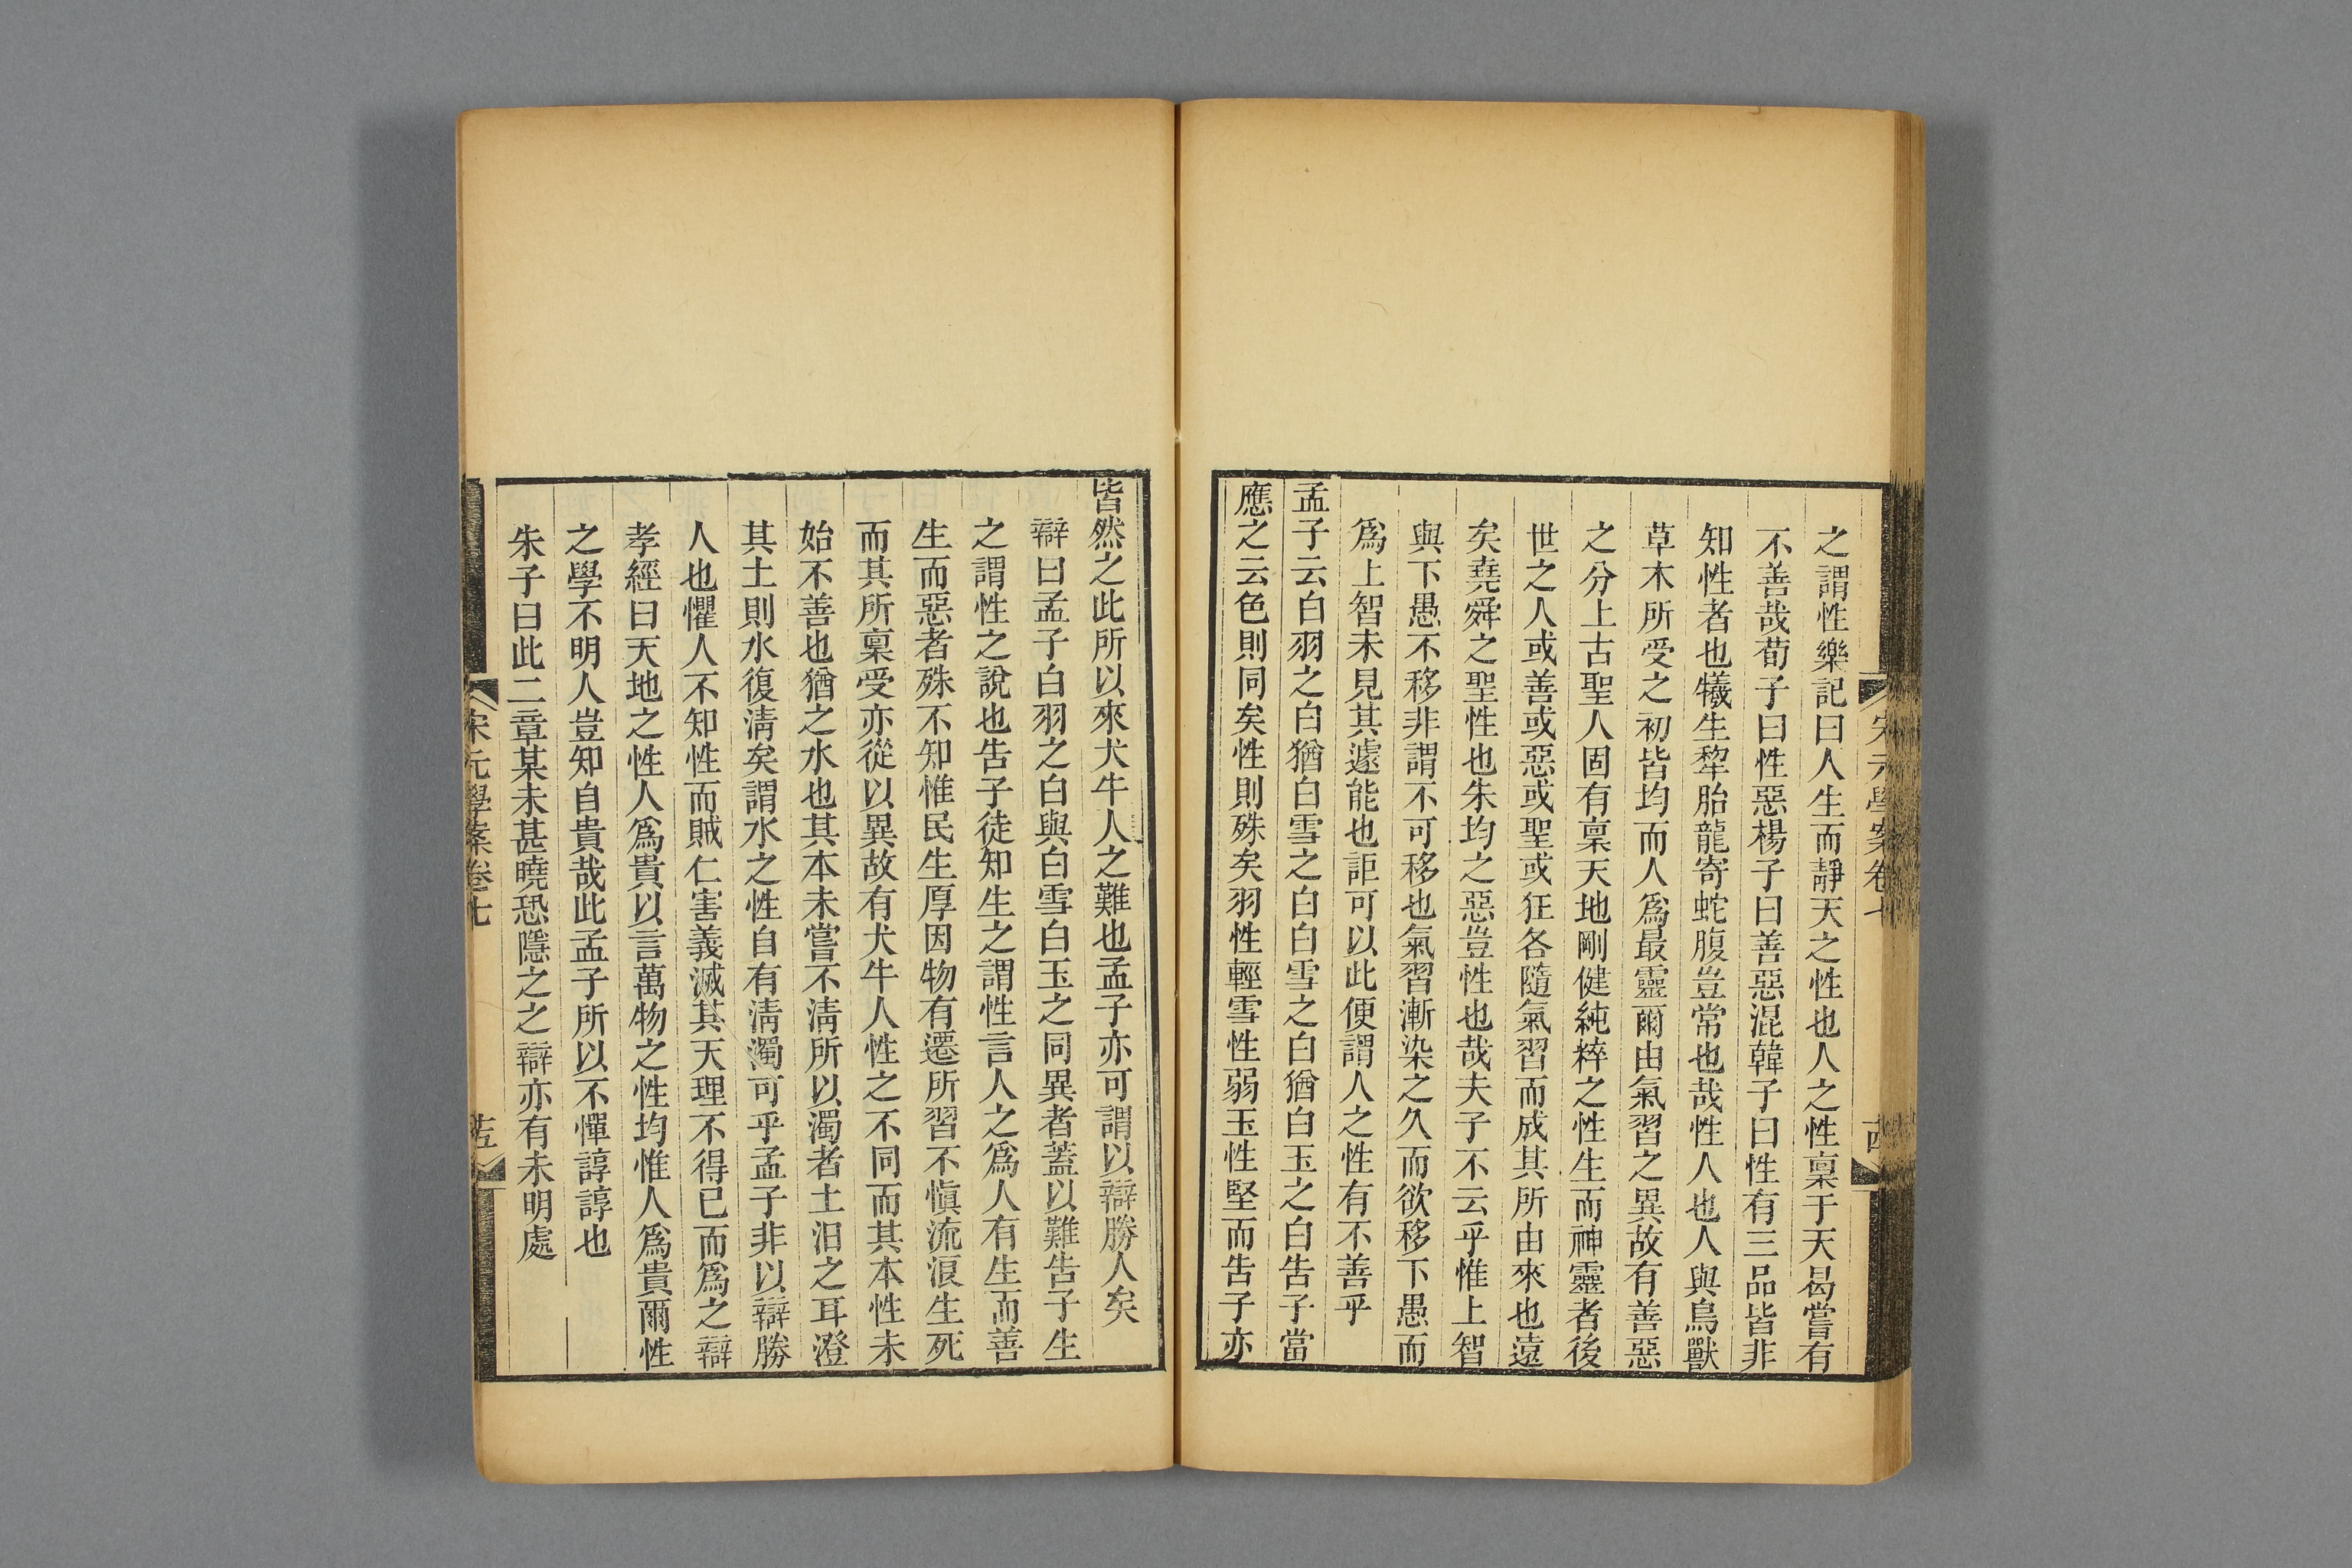 宋元學案卷七
之謂性樂記曰人生而靜天之性也人之性稟于天曷嘗有
不善哉荀子曰性惡楊子曰善惡混韓子曰性有三品皆非
知性者也犧生犂胎龍寄蛇腹豈常也哉性人也人與鳥獸
草木所受之初皆均而人爲最靈爾由氣習之異故有善惡
之分上古聖人固有稟天地剛健純粹之性生而神靈者後
世之人或善或惡或聖或狂各隨氣習而成其所由來也遠
矣堯舜之聖性也朱均之惡豈性也哉夫子不云乎惟上智
與下愚不移非謂不可移也氣習漸染之久而欲移下愚而
爲上智未見其遽能也詎可以此便謂人之性有不善乎
孟子云白羽之白猶白雪之白白雪之白猶白玉之白告子當
應之云色則同矣性則殊矣羽性輕雪性弱玉性堅而告子亦
皆然之此所以來犬牛人之難也孟子亦可謂以辯勝人矣
辯曰孟子白羽之白與白雪白玉之同異者蓋以難告子生
之謂性之說也告子徒知生之謂性言人之爲人有生而善
生而惡者殊不知惟民生厚因物有遷所習不愼流浪生死
而其所稟受亦從以異故有犬牛人性之不同而其本性未
始不善也猶之水也其本未嘗不淸所以濁者土汩之耳澄
其土則水復淸矣謂水之性自有淸濁可乎孟子非以辯勝
人也懼人不知性而賊仁害義滅其天理不得已而爲之辯
孝經曰天地之性人爲貴以言萬物之性均惟人爲貴爾性
之學不明人豈知自貴哉此孟子所以不憚諄諄也
朱子曰此二章某未甚曉恐隱之之辯亦有未明處
宋元學案卷七